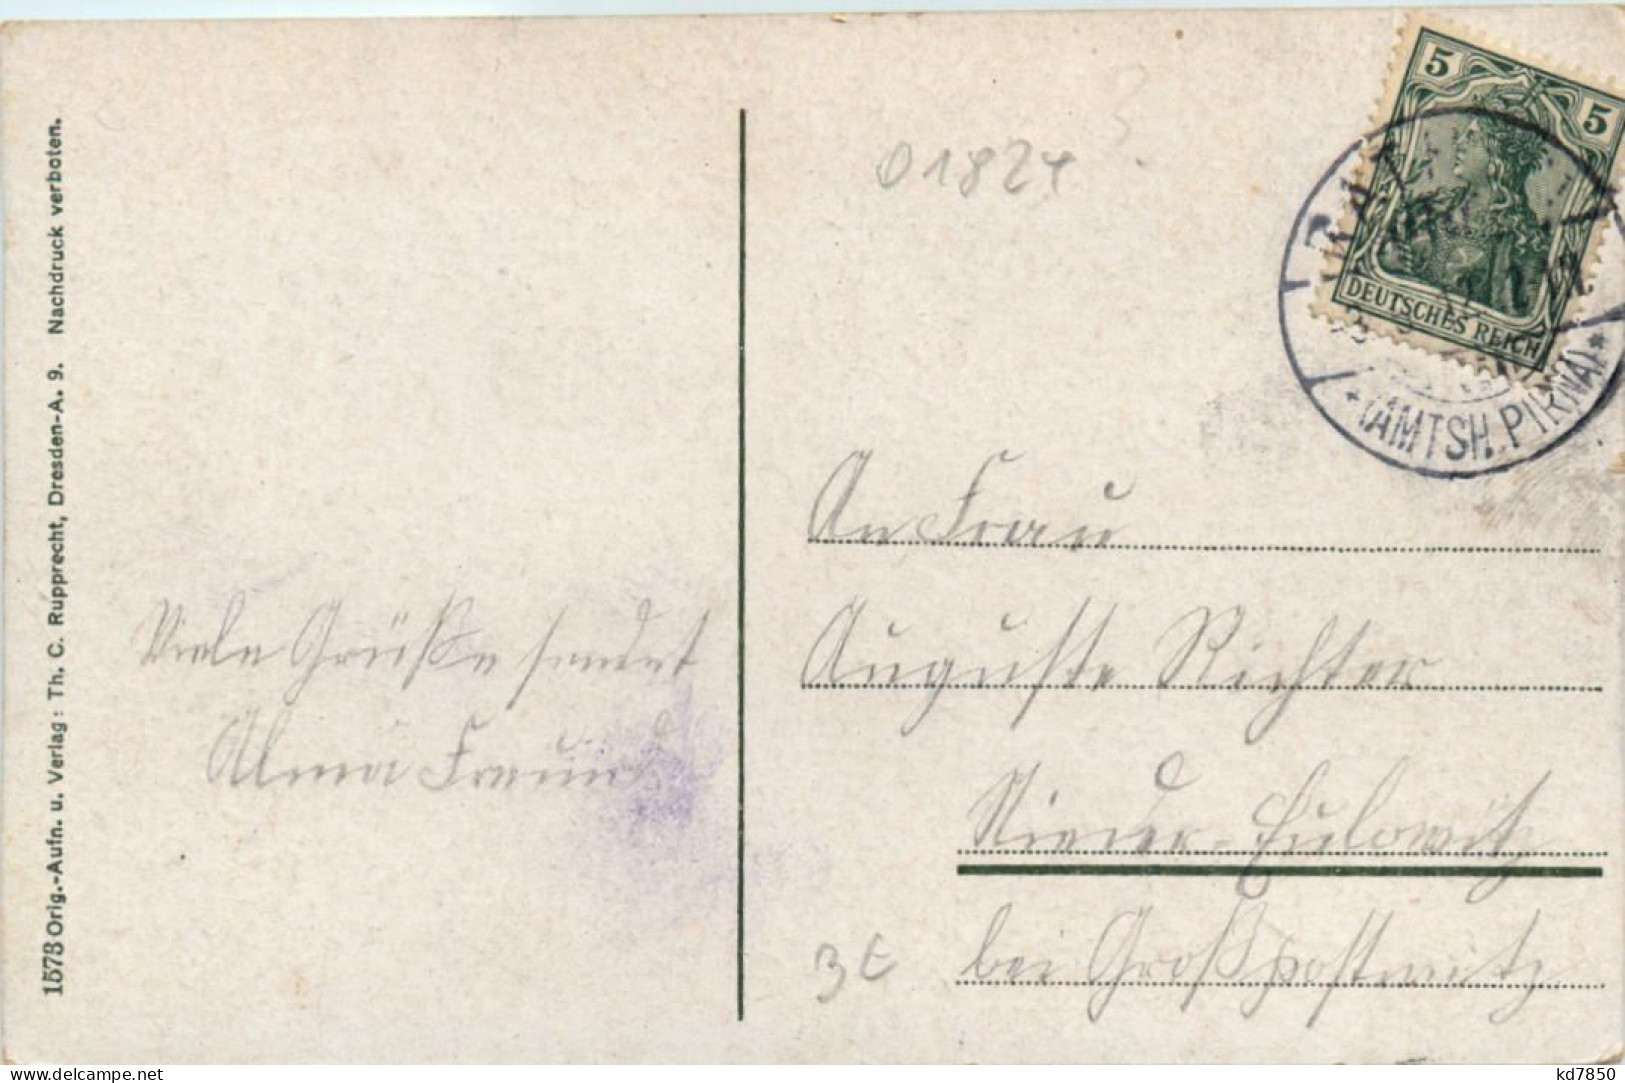 1573 Orig.-Aufn. u. Verlag: Th. C. Rupprecht, Dresden-A. 9. Nachdruck verboten.
Viele Grüße sendet
Alma
01824
5 5
DEUTSCHES REICH
(AMTSH. PIRNA)
An Frau
Auguste Richter
Nieder-Eulowitz
bei Großpostwitz
3 €
www.delcampe.net
kd7850